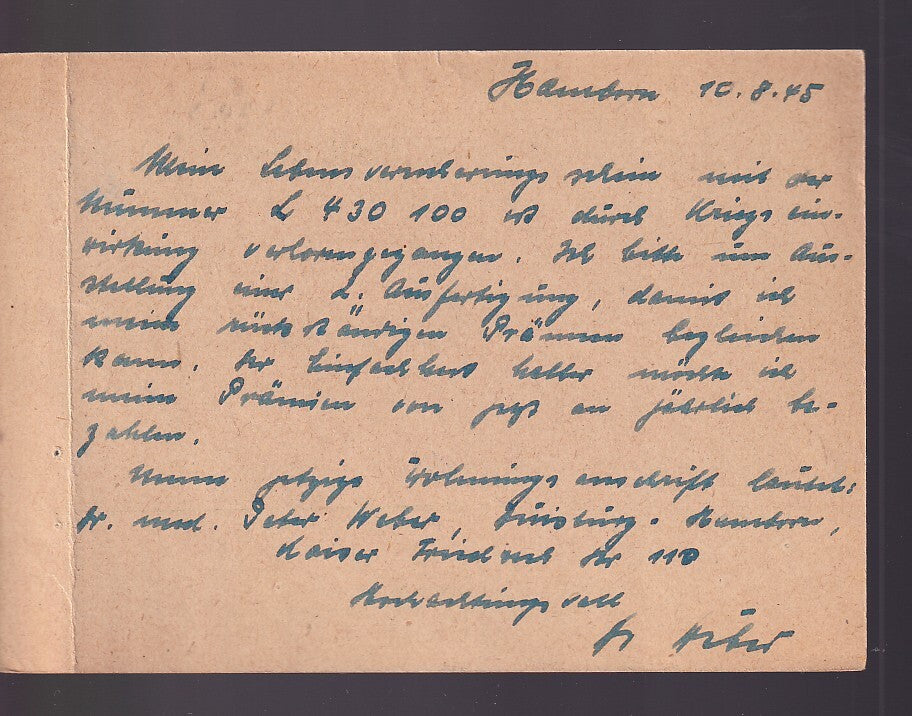 Hamborn 10.8.45
Mein Lebensversicherungsschein mit der
Nummer L 430 100 ist durch Kriegsein-
wirkung verlorengegangen. Ich bitte um Aus-
stellung einer 2. Ausfertigung, damit ich
meine rückständigen Prämien begleichen
kann. Der Einfachheit halber möchte ich
meine Prämien von jetzt an jährlich be-
zahlen.
Meine jetzige Wohnungsanschrift lautet:
Dr. med. Peter Weber, Duisburg-Hamborn,
Kaiser Friedrich Str 110
Hochachtungsvoll
Dr Weber